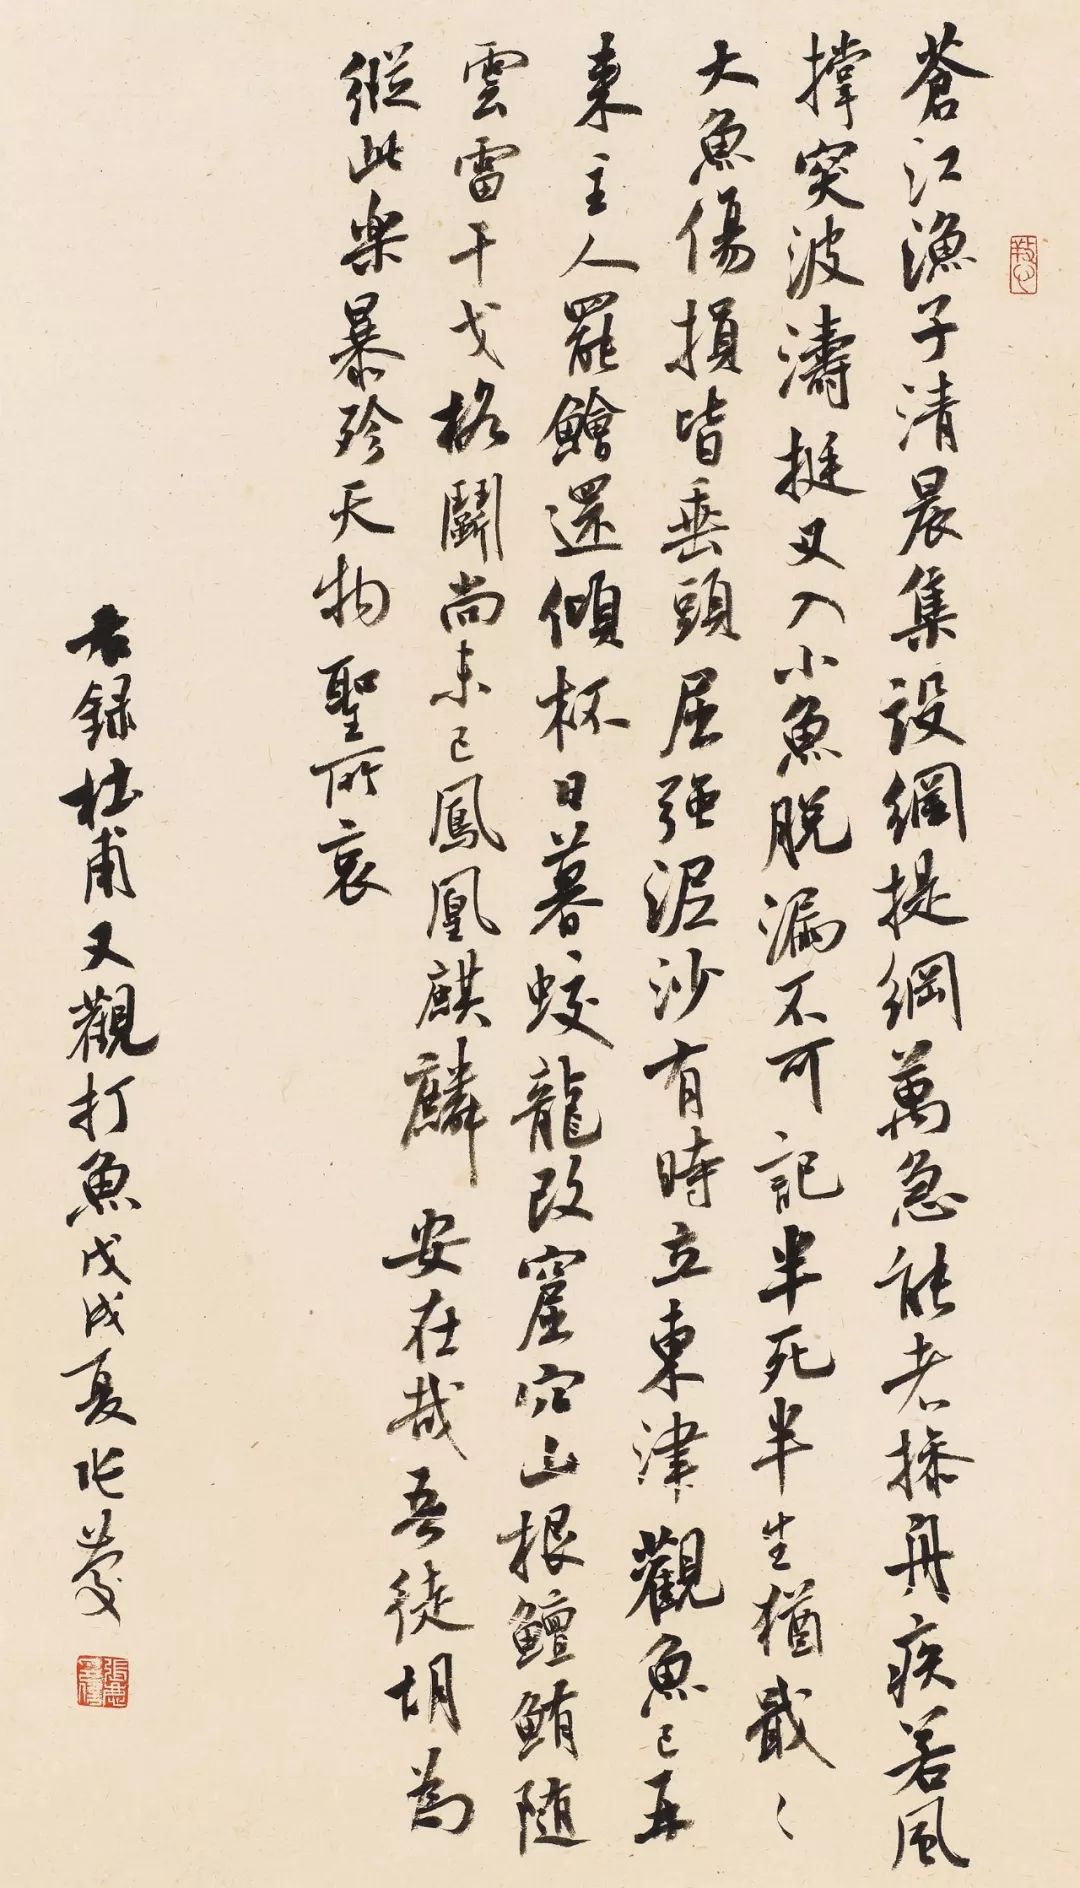 蒼江漁子清晨集設網提綱萬急能者操舟疾若風
撐突波濤挺叉入小魚脫漏不可記半死半生猶戢〻
大魚傷損皆垂頭屈強泥沙有時立東津觀魚已再
來主人罷鱠還傾杯日暮蛟龍改窟穴山根鱣鮪隨
雲雷干戈格鬬尚未已鳳凰麒麟安在哉吾徒胡為
縱此樂暴殄天物聖所哀
右録杜甫又觀打魚戊戌夏